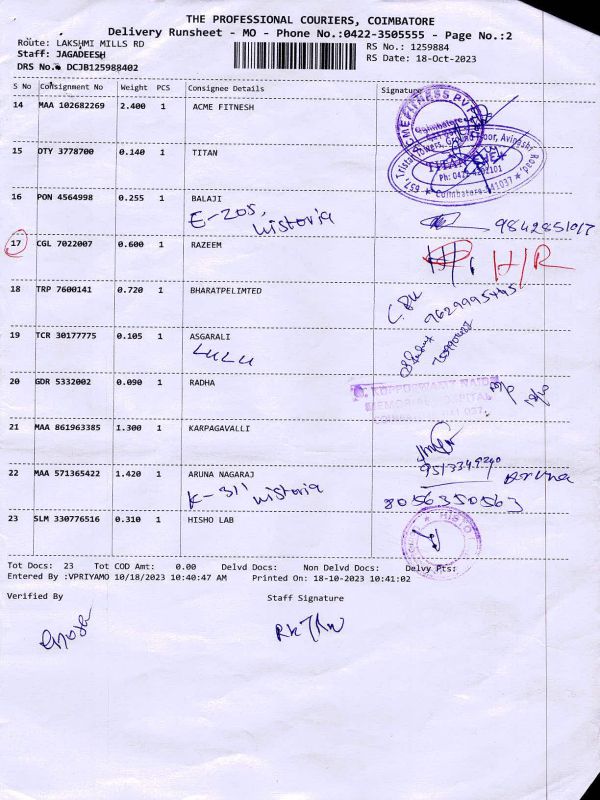 THE PROFESSIONAL COURIERS, COIMBATORE
Delivery Runsheet - MO - Phone No.:0422-3505555 - Page No.:2
Route: LAKSHMI MILLS RD
RS No.: 1259884
Staff: JAGADEESH
RS Date: 18-Oct-2023
DRS No. DCJB125988402
S No Consignment No Weight PCS Consignee Details Signature
14 MAA 102682269 2.400 1 ACME FITNESH
15 DTY 3778700 0.140 1 TITAN
TITAN
Ph: 0422
Coimbatore
16 PON 4564998 0.255 1 BALAJI
E-205, wistoria
9842851017
17 CGL 7022007 0.600 1 RAZEEM
H/R
18 TRP 7600141 0.720 1 BHARATPELIMTED
9629995445
19 TCR 30177775 0.105 1 ASGARALI
LULU
20 GDR 5332002 0.090 1 RADHA
KUPPUSWAMY NAIDU
MEMORIAL HOSPITAL
21 MAA 861963385 1.300 1 KARPAGAVALLI
22 MAA 571365422 1.420 1 ARUNA NAGARAJ
K-311 wistoria
Aruna
8056350563
23 SLM 330776516 0.310 1 HISHO LAB
Tot Docs: 23 Tot COD Amt: 0.00 Delvd Docs: Non Delvd Docs: Delvy Pts:
Entered By :VPRIYAMO 10/18/2023 10:40:47 AM Printed On: 18-10-2023 10:41:02
Verified By Staff Signature